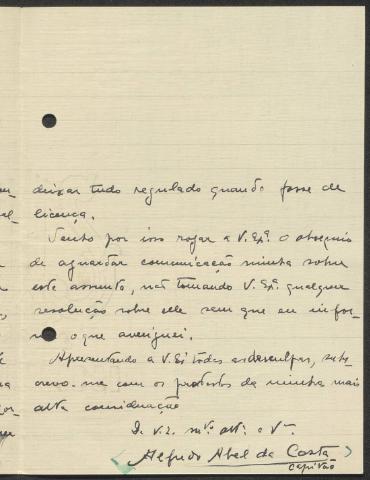 deixar tudo regulado quando fosse de
licença.
Tenho por isso rogar a V. Exª. o obsequio
de aguardar comunicação minha sobre
este assunto, não tomando V. Exª. qualquer
resolução sobre ele sem que eu infor-
me o que averiguei.
Apresentando a V. Exª todas as desculpas, subs-
crevo-me com os protestos da minha mais
alta consideração
De V. E. mto. attº. e Vor.
Alfredo Abel da Costa
Capitão